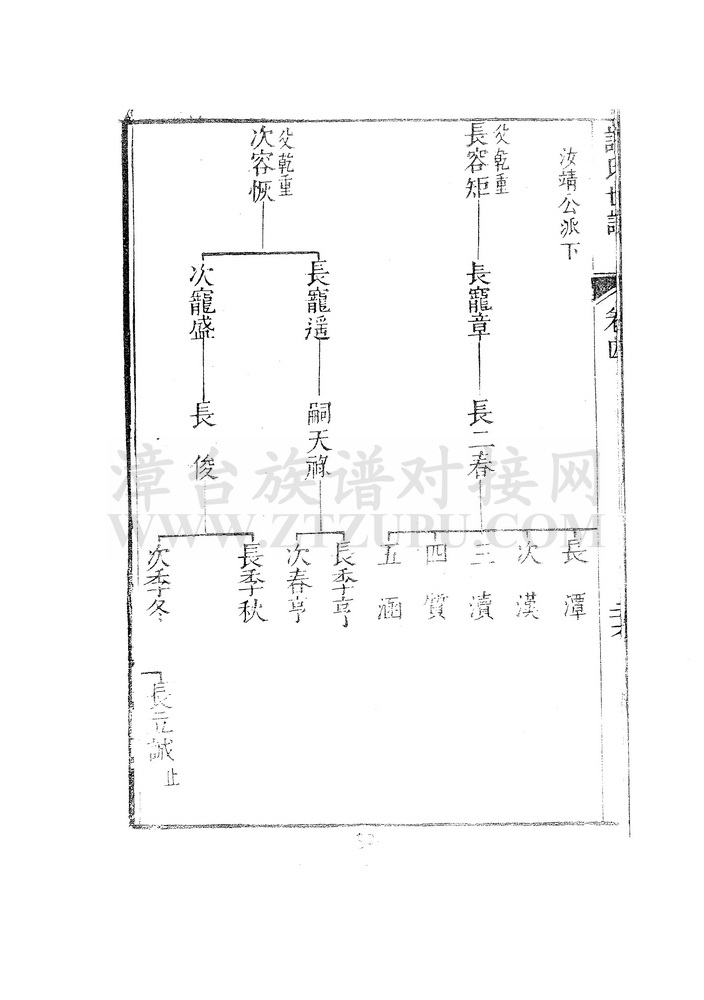 卷四
汝靖公派下
父乾重
長容矩
長寵章
長二春
長潭
次漢
三瀆
四質
五涵
父乾重
次容恢
長寵遥
嗣天祿
長季亨
次春亨
次寵盛
長俊
長季秋
次季冬
長元誠
止
漳台族谱对接网
WWW.ZTZUPU.COM